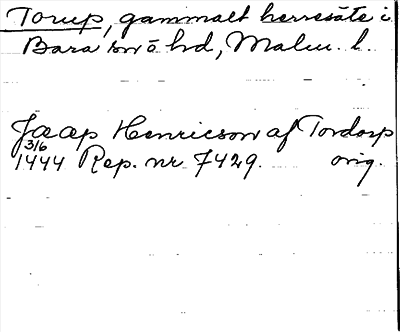 Torup, gammalt herresäte i
Bara sn o hd, Malm. l.
Jaap Henricson af Tordorp
3/6
1444 Rep. nr 7429. orig.